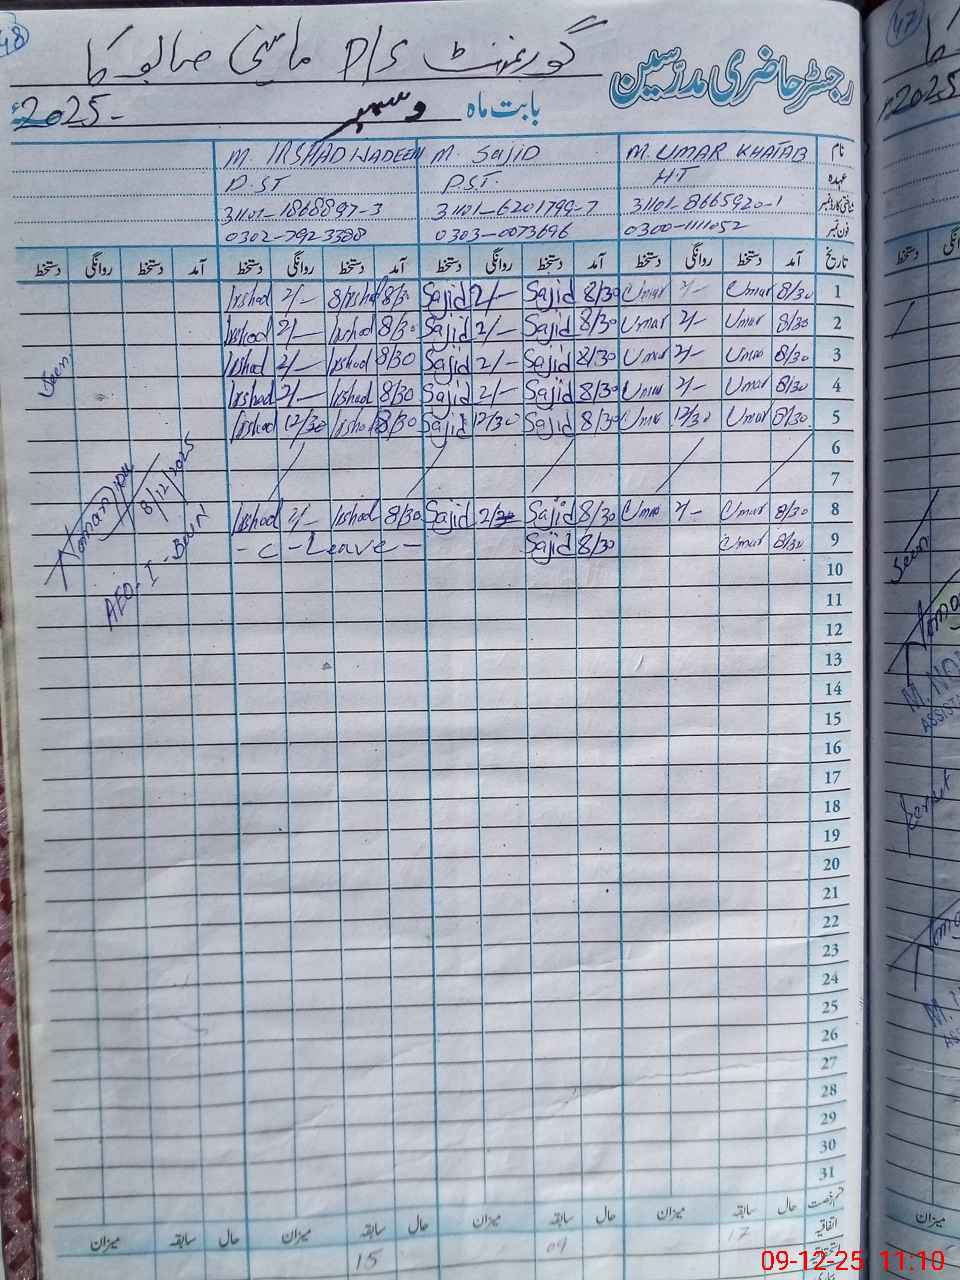 48
گورنمنٹ P/S ماسی صالوکا
رجسٹر حاضری مدرسین
بابت ماہ دسمبر 2025ء
نام M. UMAR KHATAB M. Sajid M. IRSHAD NADEEM
عہدہ HT P.S.T. P.ST
شناختی کارڈ نمبر 31101-8665920-1 31101-6201799-7 31101-1868897-3
فون نمبر 0300-1111052 0303-0073696 0302-7923388
تاریخ آمد دستخط روانگی دستخط آمد دستخط روانگی دستخط آمد دستخط روانگی دستخط آمد دستخط روانگی دستخط
1 8/30 Umar 2/- Umar 8/30 Sajid 2/- Sajid 8/30 Irshad 2/- Irshad
2 8/30 Umar 2/- Umar 8/30 Sajid 2/- Sajid 8/30 Irshad 2/- Irshad
3 8/30 Umar 2/- Umar 8/30 Sajid 2/- Sajid 8/30 Irshad 2/- Irshad
4 8/30 Umar 2/- Umar 8/30 Sajid 2/- Sajid 8/30 Irshad 2/- Irshad
5 8/30 Umar 12/30 Umar 8/30 Sajid 12/30 Sajid 8/30 Irshad 12/30 Irshad
6
7
8 8/30 Umar 2/- Umar 8/30 Sajid 2/- Sajid 8/30 Irshad 2/- Irshad
9 8/30 Umar 8/30 Sajid - C - Leave -
10
11
12
13
14
15
16
17
18
19
20
21
22
23
24
25
26
27
28
29
30
31
Seen
8/12/2025
AEO-I-
قسم رخصت حال سابقہ میزان حال سابقہ میزان حال سابقہ میزان حال سابقہ میزان
اتفاقیہ 17 09 15
47
2025
Seen
میزان
09-12-25 11:10